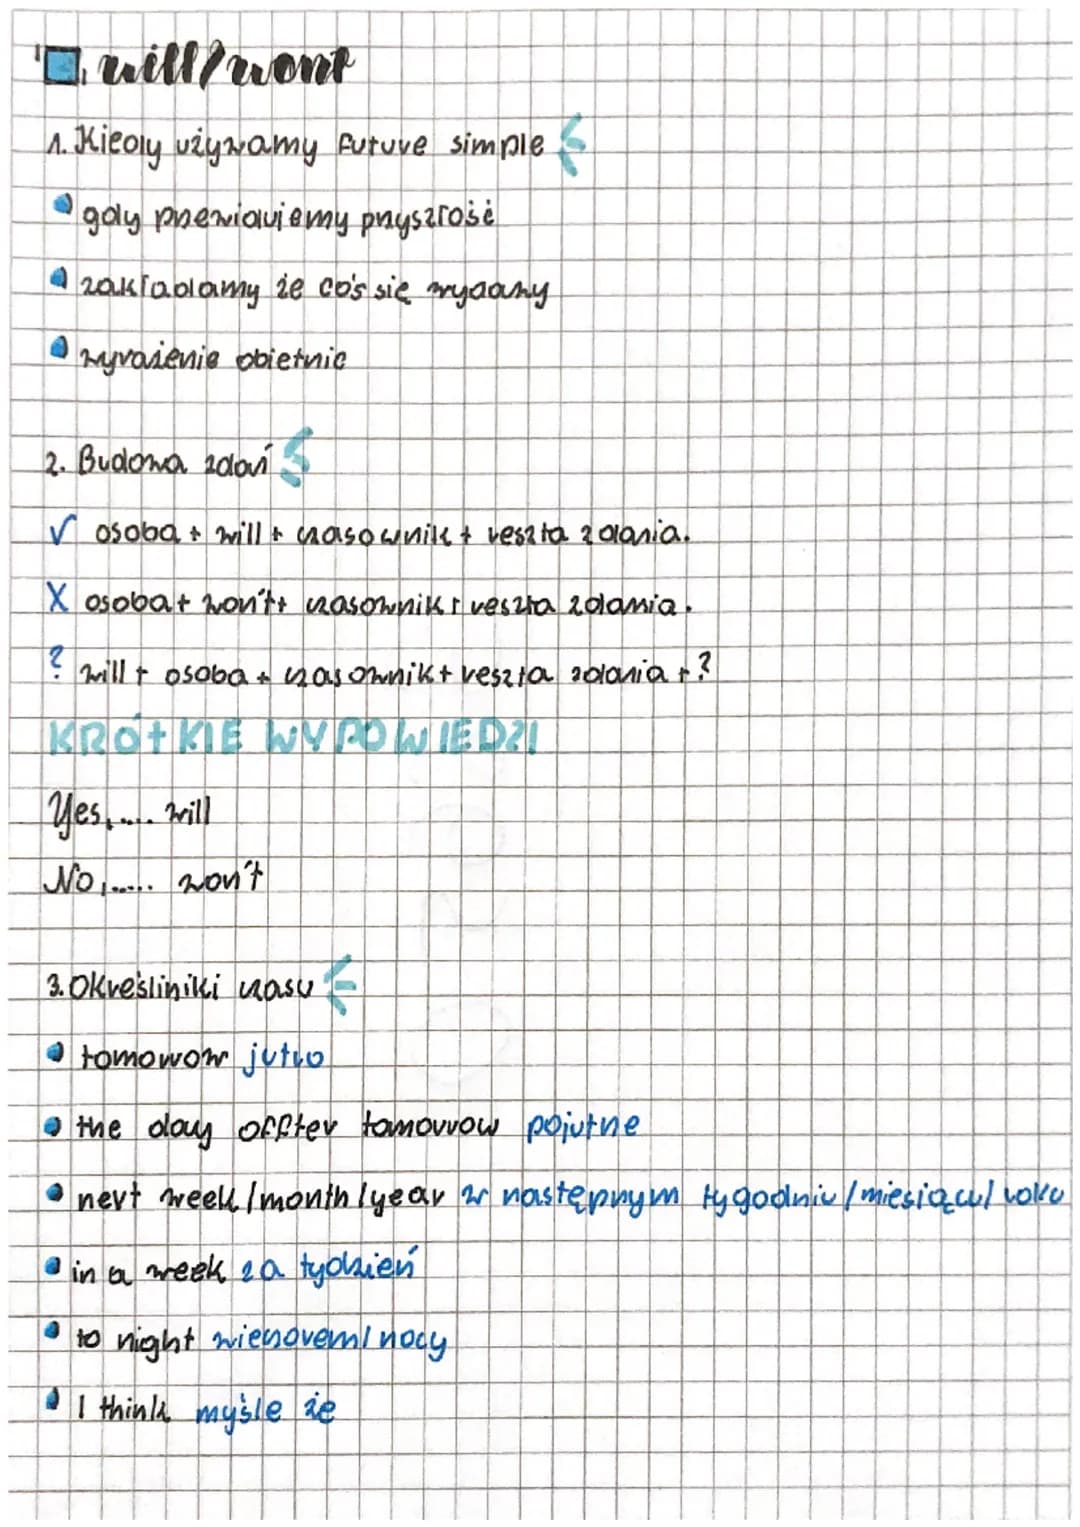 will/wont
1. Kiedy używamy future simple
gdy przewidujemy przyszłość
zakładamy że coś się wydarzy
wyrażenie obietnic
2. Budowa zdań
✓ osoba + will + czasownik + reszta zdania.
X osoba + won't + czasownik + reszta zdania.
? will + osoba + czasownik + reszta zdania + ?
KRÓTKIE WYPOWIEDZI
Yes, .... will
No, ..... won't
3. Określiniki czasu
tomorrow jutro
the day offter tomorrow pojutrze
next week/month/year w następnym tygodniu/miesiącu/roku
in a week za tydzień
to night wieczorem/nocy
I think myśle że